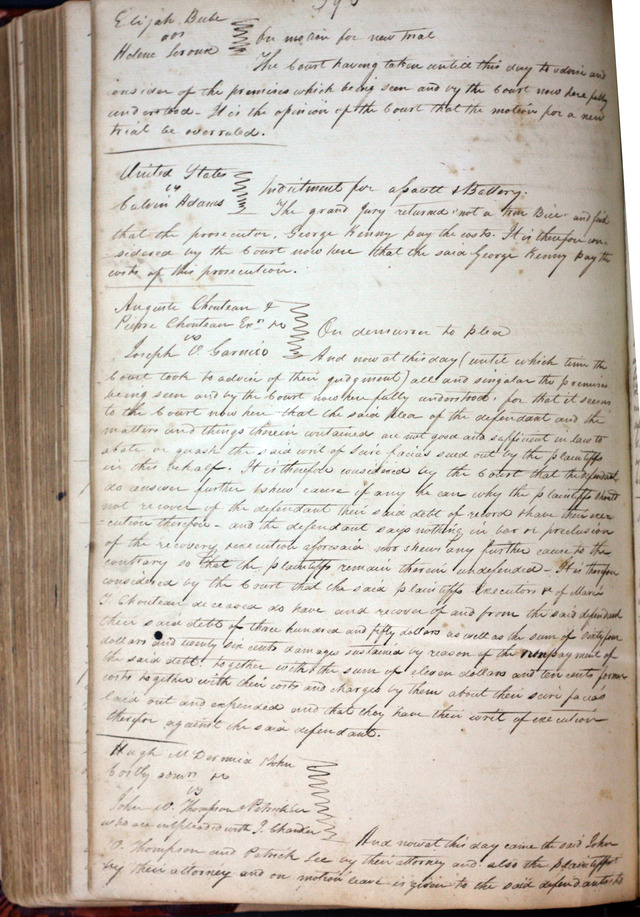 Elijah Bebe
vs
Helene Leroux
On motion for new trial
The Court having taken untill this day to advise and
consider of the premises which being seen and by the Court now here fully
understood. It is the opinion of the Court that the motion for a new
trial be overruled.
United States
vs
Calvin Adams
Indictment for assault & Battery.
The grand Jury returned "not a true Bill" and find
that the prosecutor, George Kenny pay the costs. It is therefore con-
sidered by the Court now here that the said George Kenny pay the
costs of this prosecution.
Auguste Chouteau &
Pierre Chouteau Exrs &c
vs
Joseph V Garnico
On demurrer to plea
And now at this day (until which time the
Court took to advise of their judgment) all and singular the premises
being seen and by the Court now here fully understood, for that it seems
to the Court now here that the said plea of the defendant and the
matters and things therein contained are not good and sufficient in law to
abate or quash the said writ of scire facias sued out by the plaintiffs
in this behalf. It is therefore considered by the Court that the defendant
do answer further & shew cause if any he can why the plaintiffs should
not recover of the defendant their said debt of record & have their exe-
cution therefore - and the defendant says nothing in bar or preclusion
of the recovery & execution aforesaid nor shews any further cause to the
contrary so that the plaintiffs remain therein undefended. It is therefore
considered by the Court that the said plaintiffs Executors &c of Marie
T. Chouteau deceased do have and recover of and from the said defendant
their said debt of three hundred and fifty dollars as well as the sum of sixty four
dollars and twenty six cents damages sustained by reason of the nonpayment of
the said debt together with the sum of eleven dollars and ten cents former
costs together with their costs and charges by them about their scire facias
laid out and expended and that they have their writ of execution
therefor against the said defendant.
Hugh McDermid & John
Costly admrs &c
vs
John W. Thompson & Patrick Lee
who are impleaded with J. Chandler
And now at this day came the said John
W. Thompson and Patrick Lee by their attorney and also the plaintiffs
by their attorney and on motion leave is given to the said defendants to